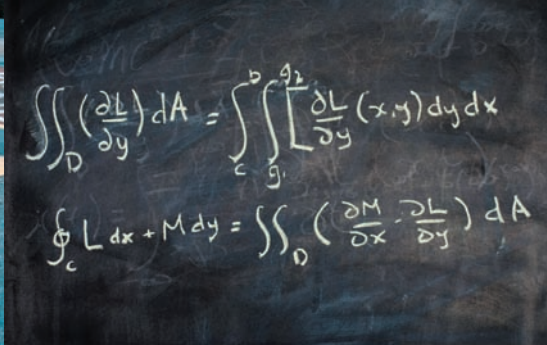 ∬_D (∂L/∂y) dA = ∫_c^b ∫_{g₁}^{g₂} [∂L/∂y (x,y) dy dx
∮_c L dx + M dy = ∬_D (∂M/∂x - ∂L/∂y) dA